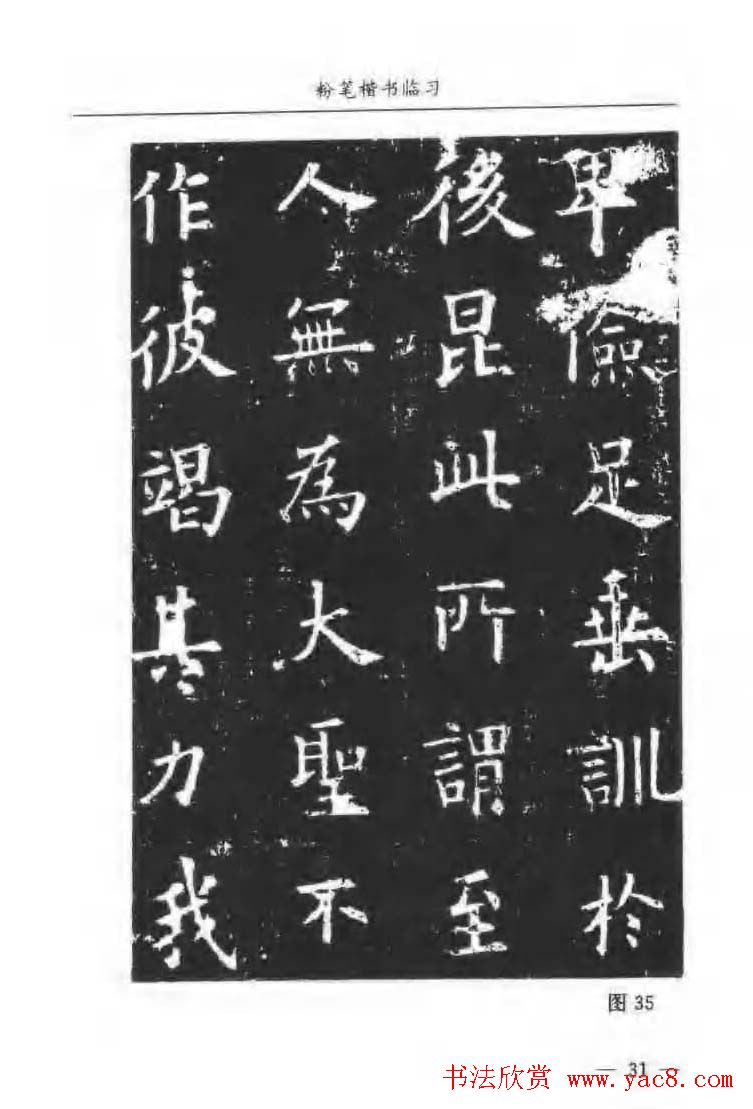 粉笔楷书临习
卑儉足垂訓於
後昆此所謂至
人無為大聖不
作彼竭其力我
图35
— 31 —
书法欣赏 www.yac8.com